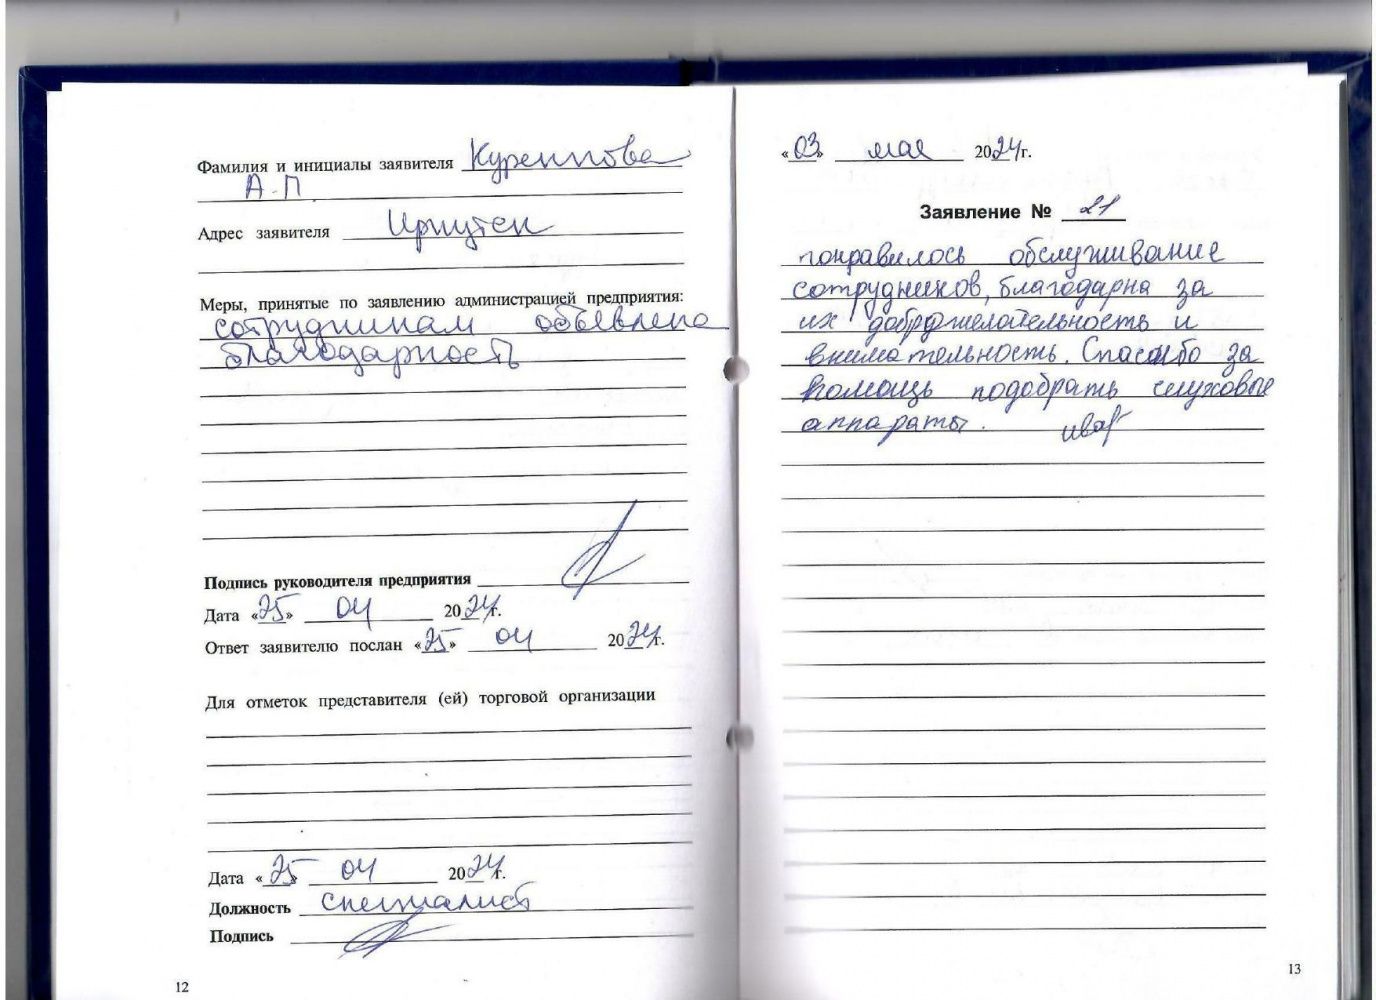 Фамилия и инициалы заявителя
А.П
Адрес заявителя Иркутск
Меры, принятые по заявлению администрацией предприятия:
сотрудникам объявлена
благодарность
Подпись руководителя предприятия
Дата «25» 04 2024г.
Ответ заявителю послан «25» 04 2024г.
Для отметок представителя (ей) торговой организации
Дата «25» 04 2024г.
Должность специалист
Подпись
12
«03» мая 2024г.
Заявление № 21
понравилось обслуживание
сотрудников, благодарна за
их доброжелательность и
внимательность. Спасибо за
помощь подобрать слуховые
аппараты.
13